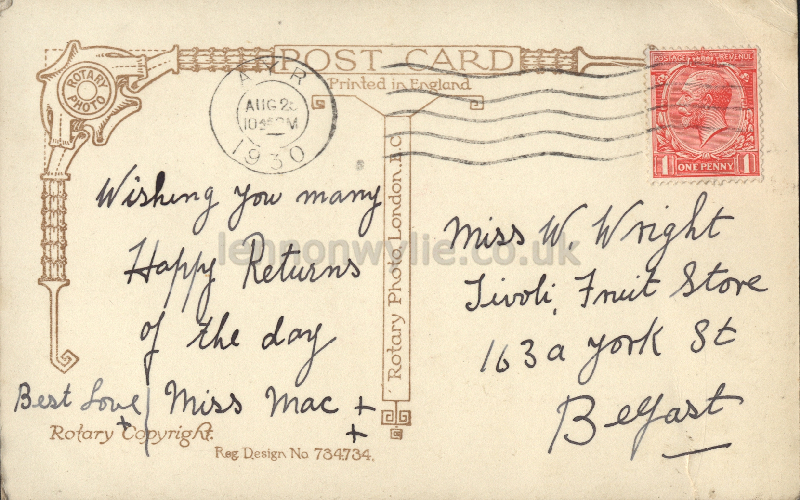 POST CARD
Printed in England
ROTARY PHOTO
AYR
AUG 2
1930
POSTAGE REVENUE
1 ONE PENNY 1
Wishing you many
Happy Returns
of the day
Best Love Miss Mac + +
+
Miss W. Wright
Tivoli, Fruit Store
163a York St
Belfast
Rotary Photo, London, E.C.
Rotary Copyright.
Reg. Design No 734,734.
lennonwylie.co.uk